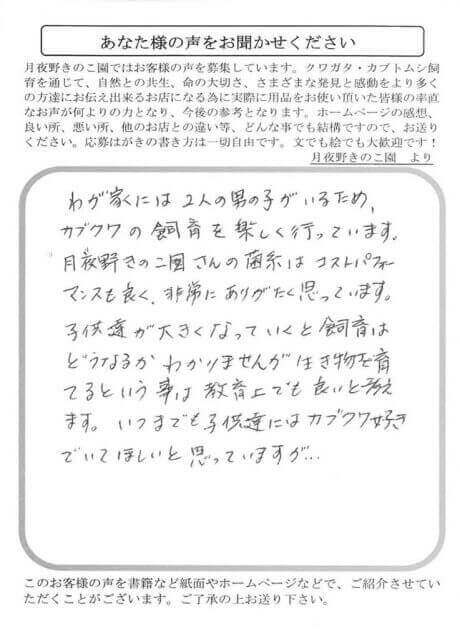 あなた様の声をお聞かせください
月夜野きのこ園ではお客様の声を募集しています。クワガタ・カブトムシ飼
育を通じて、自然との共生、命の大切さ、さまざまな発見と感動をより多く
の方達にお伝え出来るお店になる為に実際に用品をお使い頂いた皆様の率直
なお声が何よりの力となり、今後の参考となります。ホームページの感想、
良い所、悪い所、他のお店との違い等、どんな事でも結構ですので、お送り
ください。応募はがきの書き方は一切自由です。文でも絵でも大歓迎です！
月夜野きのこ園　より
わが家には2人の男の子がいるため、
カブクワの飼育を楽しく行っています。
月夜野きのこ園さんの菌糸はコストパフォー
マンスも良く、非常にありがたく思っています。
子供達が大きくなっていくと飼育は
どうなるかわかりませんが生き物を育
てるという事は教育上でも良いと考え
ます。いつまでも子供達にはカブクワ好き
でいてほしいと思っていますが…
このお客様の声を書籍など紙面やホームページなどで、ご紹介させてい
ただくことがございます。ご了承の上お送り下さい。